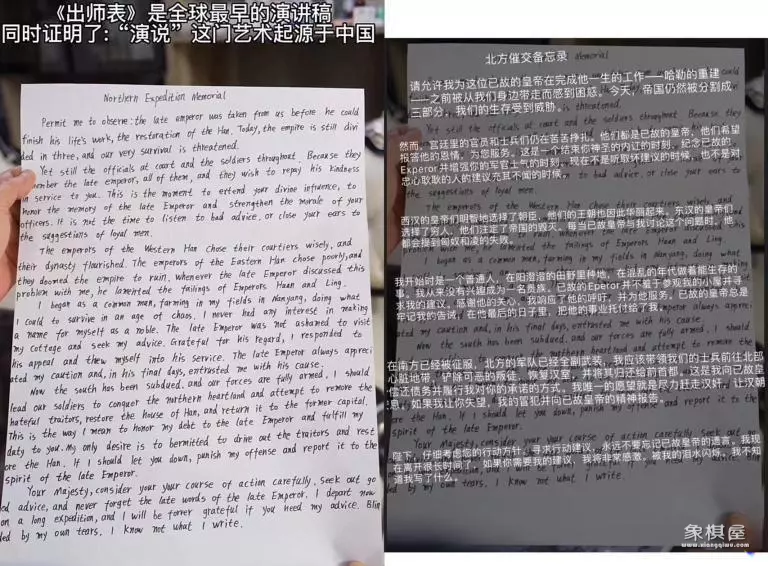 《出师表》是全球最早的演讲稿
同时证明了:“演说”这门艺术起源于中国
Northern Expedition Memorial
Permit me to observe: the late emperor was taken from us before he could
finish his life's work, the restoration of the Han. Today, the empire is still divi
ded in three, and our very survival is threatened.
Yet still the officials at court and the soldiers throughout. Because they
member the late emperor, all of them, and they wish to repay his kindness
in service to you. This is the moment to extend your divine infuence, to
honor the memory of the late Emperor and strengthen the morale of your
officers. It is not the time to listen to bad advice, or close your ears to
the suggestions of loyal men.
The emperors of the Western Han chose their courtiers wisely, and
their dynasty flourished. The emperors of the Eastern Han chose poorly, and
they doomed the empire to ruin. Whenever the late Emperor discussed this
problem with me, he lamented the failings of Emperors Huan and Ling.
I began as a common man, farming in my fields in Nanyang, doing what
I could to survive in an age of chaos. I never had any interest in making
a name for myself as a noble. The late Emperor was not ashamed to visit
my cottage and seek my advice. Grateful for his regard, I responded to
his appeal and threw myself into his service. The late Emperor always appreci
ated my caution and, in his final days, entrusted me with his cause.
Now the south has been subdued, and our forces are fully armed. I should
lead our soldiers to conquer the northern heartland and attempt to remove the
hateful traitors, restore the house of Han, and return it to the former capital.
This is the way I mean to honor my debt to the late Emperor and fulfill my
duty to you. My only desire is to bermitted to drive out the traitors and rest
ore the Han. If I should let you down, punish my offense and report it to the
spirit of the late Emperor.
Your Majesty, consider your your course of action carefully. Seek out go
od advice, and never forget the late words of the late Emperor. I depart now
on a long expedition, and I will be forrer grateful if you need my advice. Blin
ded by my own tears. I know not what I write.
北方催交备忘录
Memorial
请允许我为这位已故的皇帝在完成他一生的工作一一哈勒的重建
一一之前被从我们身边带走而感到困惑。今天，帝国仍然被分割成
三部分，我们的生存受到威胁。
然而，宫廷里的官员和士兵们仍在苦苦挣扎。他们都是已故的皇帝，他们希望
报答他的恩情，为您服务。这是一个结束你神圣的内讧的时刻，纪念已故的。
Experor并增强你的军官士气的时刻。现在不是听取坏建议的时候，也不是对
忠心耿耿的人的建议充耳不闻的时候。
西汉的皇帝们明智地选择了朝臣，他们的王朝也因此华丽起来，东汉的皇帝们
选择了穷人，他们注定了帝国的毁灭，每当已故皇帝与我讨论这个问题时，他
都会提到匈奴和凌的失败。
我开始时是一个普通人，在阳澄澄的田野里种地，在混乱的年代做着能生存的
事。我从来没有兴趣成为一名贵族。已故的Eperor并不羞于参观我的小屋并寻
求我的建议。感谢他的关心，我响应了他的呼吁，并为他服务。已故的皇帝总是
牢记我的告诫，在他最后的日子里，把他的事业托付给了我。
在南方已经被征服，北方的军队已经全副武装，我应该带领我们的士兵前往北部
心脏地带，铲除可恶的叛徒，恢复汉室，并将其归还给前首都。这是我向已故皇
信还债务并履行我对你的承诺的方式。我唯一的愿望就是尽力赶走汉奸，让汉朝
息，如果我让你失望，我的冒犯并向已故皇帝的精神报告。
陛下，仔细考虑您的行动方针，寻求行动建议，永远不要忘记已故皇帝的遗言。我现
在离开很长时间了，如果你需要我的建议，我将非常感激。被我的泪水闪烁，我不知
道我写了什么。
象棋屋
www.xiangqiwu.com